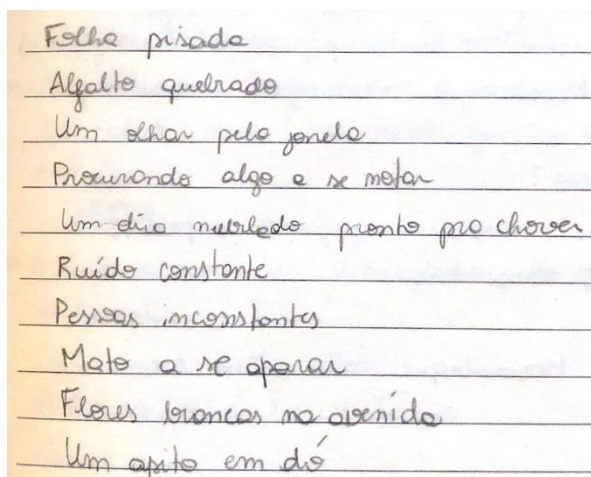 Folha pisada
Alfalto quebrado
Um olhar pela janela
Procurando algo a se notar
Um dia nublado pronto pra chover
Ruído constante
Pessoas inconstantes
Mato a se aparar
Flores brancas na avenida
Um apito em dó